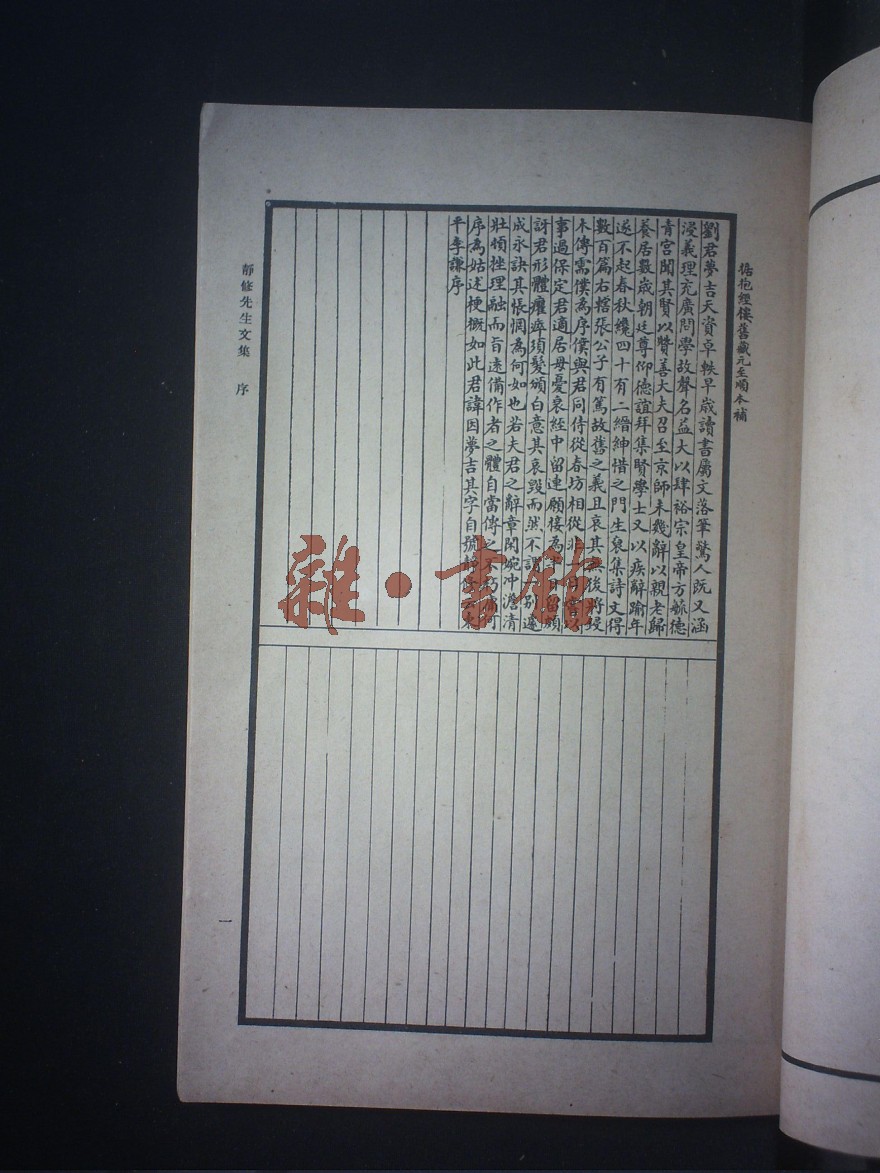 据抱經樓舊藏元至順本補
劉君夢吉天資卓軼早歲讀書屬文落筆驚人既又涵
浸義理充廣問學故聲名益大以肆裕宗皇帝方毓德
青宮聞其賢以贊善大夫召至京師未幾辭以親老歸
養居數歲朝廷尊仰德誼拜集賢學士又以疾辭踰年
遂不起春秋纔四十有二縉紳惜之門生裒集詩文得
數百篇右轄張公子有篤故舊之義且哀其無後將授
木傳需僕為序僕與君同侍從春坊相從非
事過保定君適居母憂衰絰中留連願接為
訝君形體癯瘁須髮頒白意其哀毀而然不謂
成永訣其悵惘為何如也若夫君之辭章閑婉冲澹清
壯頓挫理融而旨遠備作者之體自當傳之不朽
序為姑述梗概如此君諱因夢吉其字自號
平李謙序
靜修先生文集 序
一
雜·書館